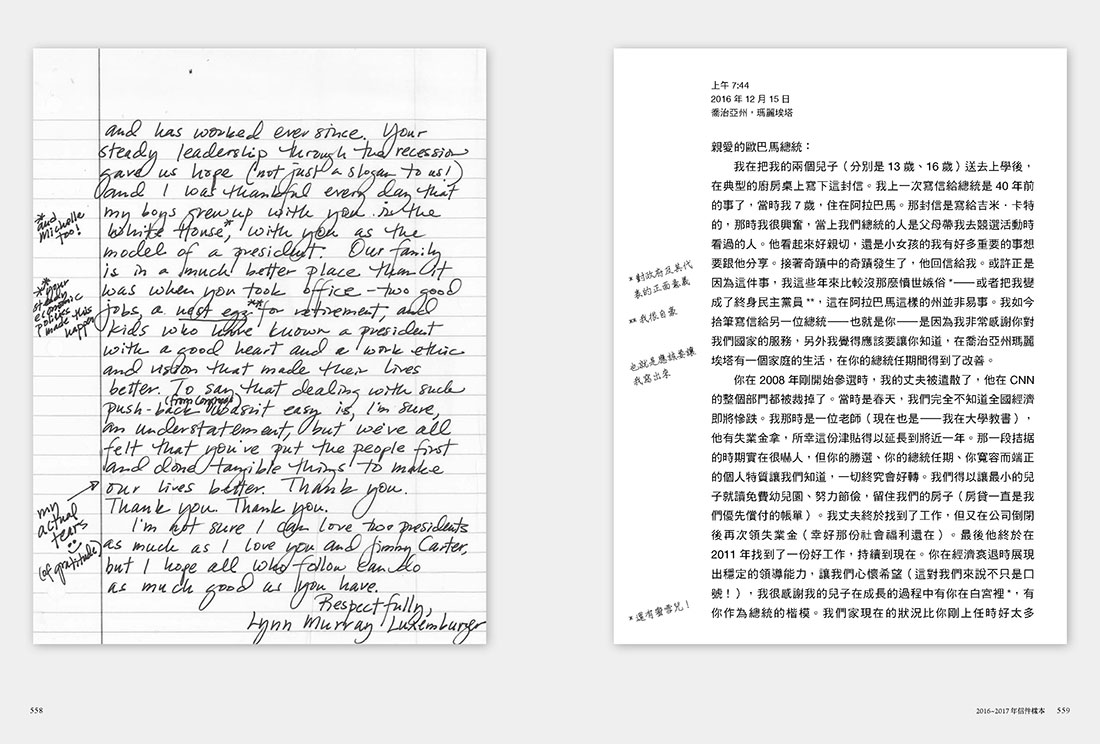 and has worked ever since. Your
steady leadership through the recession
gave us hope (not just a slogan to us!)
and I was thankful every day that
my boys grew up with you in the
*and
Michelle
too!
White House*, with you as the
model of a president. Our family
is in a much better place than it
was when you took office – two good
**your
steady
economic
policies
made this
happen
jobs, a nest egg** for retirement, and
kids who have known a president
with a good heart and a work ethic
and vision that made their lives
better. To say that dealing with such
(from Congress)
push-back wasn't easy is, I'm sure,
an understatement, but we've all
felt that you've put the people first
and done tangible things to make
our lives better. Thank you.
my
actual
tears
(of gratitude)
Thank you. Thank you.
I'm not sure I can love two presidents
as much as I love you and Jimmy Carter,
but I hope all who follow can do
as much good as you have.
Respectfully,
Lynn Murray Luxemburger
558
上午 7:44
2016 年 12 月 15 日
喬治亞州，瑪麗埃塔
親愛的歐巴馬總統：
我在把我的兩個兒子（分別是 13 歲、16 歲）送去上學後，
在典型的廚房桌上寫下這封信。我上一次寫信給總統是 40 年前
的事了，當時我 7 歲，住在阿拉巴馬。那封信是寫給吉米・卡特
的，那時我很興奮，當上我們總統的人是父母帶我去競選活動時
看過的人。他看起來好親切，還是小女孩的我有好多重要的事想
要跟他分享。接著奇蹟中的奇蹟發生了，他回信給我。或許正是
*對政府及其代
表的正面意義
因為這件事，我這些年來比較沒那麼憤世嫉俗*——或者把我變
成了終身民主黨員**，這在阿拉巴馬這樣的州並非易事。我如今
**我很自豪
拾筆寫信給另一位總統——也就是你——是因為我非常感謝你對
我們國家的服務，另外我覺得應該要讓你知道，在喬治亞州瑪麗
也就是應該要讓
我寫出來
埃塔有一個家庭的生活，在你的總統任期間得到了改善。
你在 2008 年剛開始參選時，我的丈夫被遣散了，他在 CNN
的整個部門都被裁掉了。當時是春天，我們完全不知道全國經濟
即將慘跌。我那時是一位老師（現在也是——我在大學教書），
他有失業金拿，所幸這份津貼得以延長到將近一年。那一段拮据
的時期實在很嚇人，但你的勝選、你的總統任期、你寬容而端正
的個人特質讓我們知道，一切終究會好轉。我們得以讓最小的兒
子就讀免費幼兒園、努力節儉，留住我們的房子（房貸一直是我
們優先償付的帳單）。我丈夫終於找到了工作，但又在公司倒閉
後再次領失業金（幸好那份社會福利還在）。最後他終於在
2011 年找到了一份好工作，持續到現在。你在經濟衰退時展現
出穩定的領導能力，讓我們心懷希望（這對我們來說不只是口
號！），我很感謝我的兒子在成長的過程中有你在白宮裡*，有
*還有蜜雪兒！
你作為總統的楷模。我們家現在的狀況比你剛上任時好太多
2016–2017 年信件樣本 559